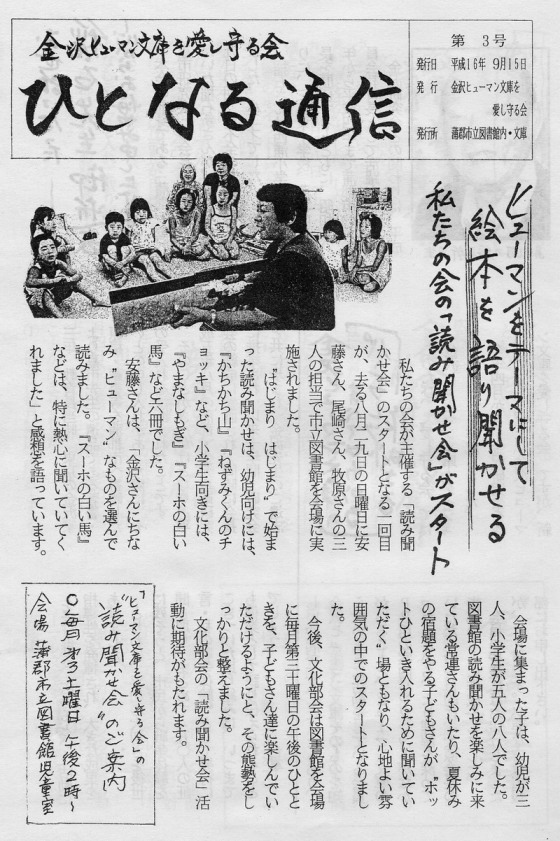 金沢ヒューマン文庫を愛し守る会
ひとなる通信
第 3号
発行日 平成16年 9月15日
発行 金沢ヒューマン文庫を
愛し守る会
発行所 蒲郡市立図書館内・文庫
ヒューマンをテーマにして
絵本を語り聞かせる
私たちの会の「読み聞かせ会」がスタート
私たちの会が主催する「読み聞
かせ会」のスタートとなる一回目
が、去る八月二九日の日曜日に安
藤さん、尾崎さん、牧原さんの三
人の担当で市立図書館を会場に実
施されました。
"はじまり はじまり"で始ま
った読み聞かせは、幼児向けには、
『かちかち山』『ねずみくんのチ
ョッキ』など、小学生向きには、
『やまなしもぎ』『スーホの白い
馬』など六冊でした。
安藤さんは、「金沢さんにちな
み〝ヒューマン〟なものを選んで
読みました。『スーホの白い馬』
などは、特に熱心に聞いていてく
れました」と感想を語っています。
会場に集まった子は、幼児が三
人、小学生が五人の八人でした。
図書館の読み聞かせを楽しみに来
ている常連さんもいたり、夏休み
の宿題をやる子どもさんが〝ホッ
トひといき入れるために聞いてい
ただく〟場ともなり、心地よい雰
囲気の中でのスタートとなりまし
た。
今後、文化部会は図書館を会場
に毎月第三土曜日の午後のひとと
きを、子どもさん達に楽しんでい
ただけるようにと、その態勢をし
っかりと整えました。
文化部会の「読み聞かせ会」活
動に期待がもたれます。
「ヒューマン文庫を愛し守る会」の
〝読み聞かせ会〟のご案内
○毎月第3土曜日 午後2時〜
会場 蒲郡市立図書館児童室